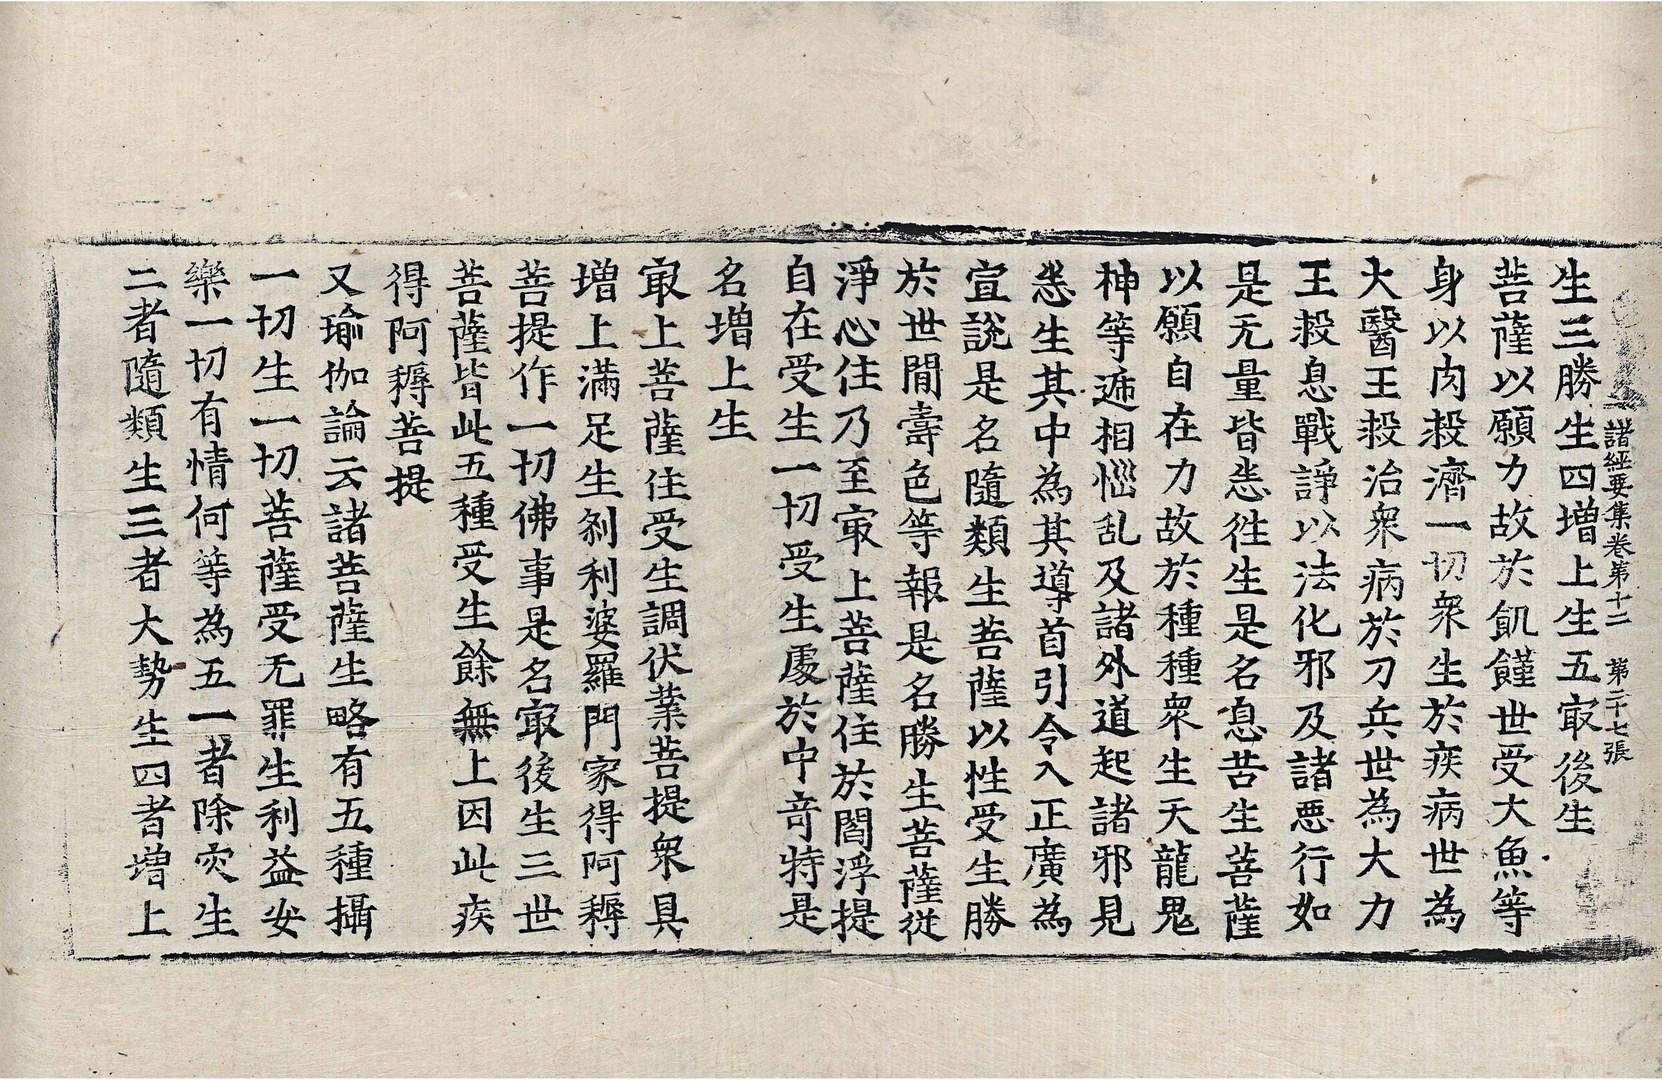 諸經要集卷第十二 第二十七張
生三勝生四增上生五㝡後生
菩薩以願力故於飢饉世受大魚等
身以肉救濟一切衆生於疾病世為
大醫王救治衆病於刀兵世為大力
王救息戰諍以法化邪及諸惡行如
是无量皆悉徃生是名息苦生菩薩
以願自在力故於種種衆生天龍鬼
神等遞相惱乱及諸外道起諸邪見
悉生其中為其導首引令入正廣為
宣說是名隨類生菩薩以性受生勝
於世間壽色等報是名勝生菩薩從
淨心住乃至㝡上菩薩住於閻浮提
自在受生一切受生處於中竒特是
名增上生
㝡上菩薩住受生調伏業菩提衆具
增上滿足生剎利婆羅門家得阿耨
菩提作一切佛事是名㝡後生三世
菩薩皆此五種受生餘無上因此疾
得阿耨菩提
又瑜伽論云諸菩薩生略有五種攝
一切生一切菩薩受无罪生利益安
樂一切有情何等為五一者除灾生
二者隨類生三者大勢生四者增上